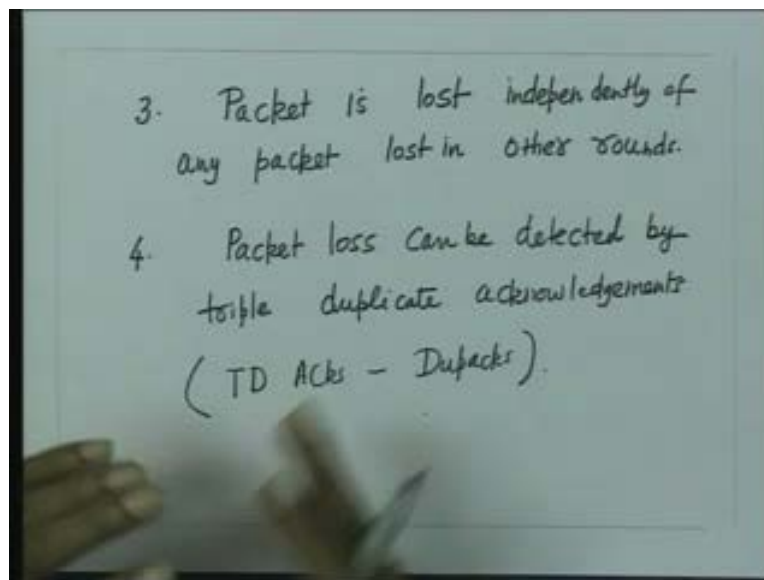 3. Packet is lost independently of
any packet lost in other rounds.
4. Packet loss can be detected by
triple duplicate acknowledgements
(TD ACks - Dupacks).